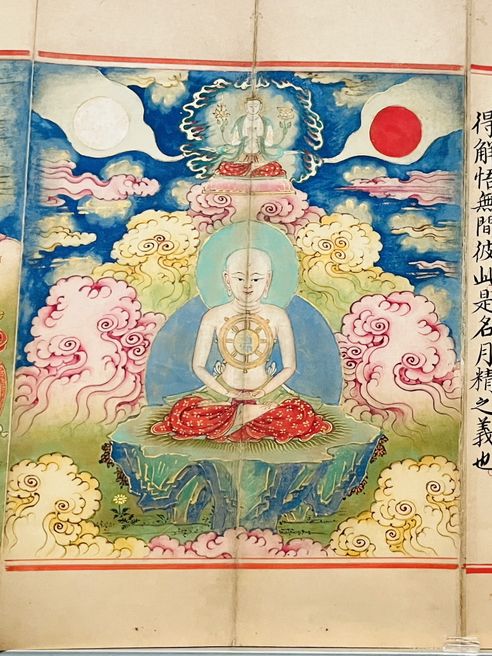 得解悟無間彼此是名月精之義也